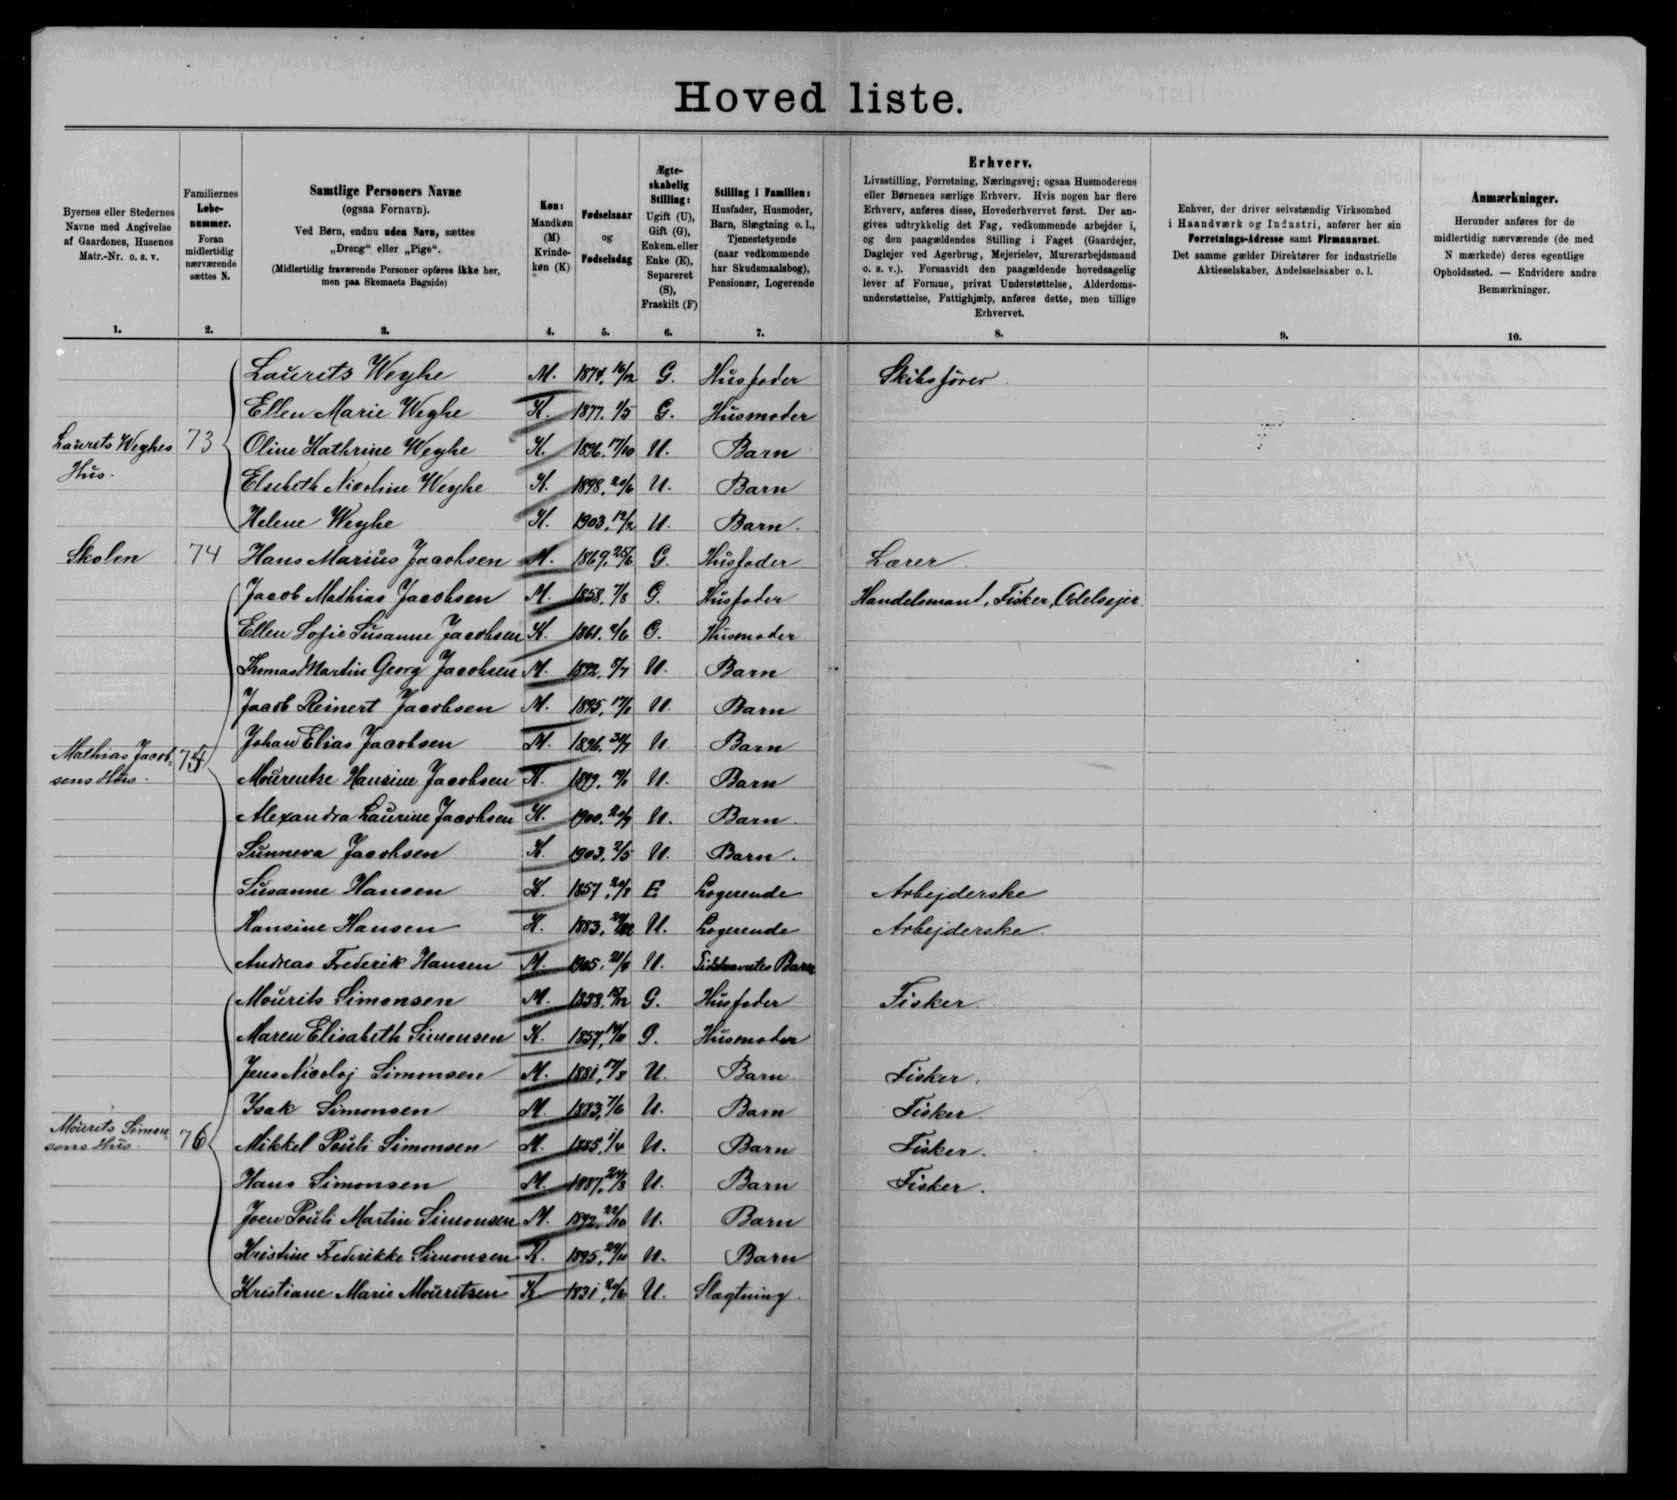 Hoved liste.
Byernes eller Stedernes
Navne med Angivelse
af Gaardenes, Husenes
Matr.-Nr. o. s. v.
1.
Familiernes
Løbe-
nummer.
Foran
midlertidig
nærværende
sættes N.
2.
Samtlige Personers Navne
(ogsaa Fornavn).
Ved Børn, endnu uden Navn, sættes
„Dreng“ eller „Pige“.
(Midlertidig fraværende Personer opføres ikke her,
men paa Skemaets Bagside)
3.
Køn:
Mandkøn
(M)
Kvinde-
køn (K)
4.
Fødselsaar
og
Fødselsdag
5.
Ægte-
skabelig
Stilling:
Ugift (U),
Gift (G),
Enkem. eller
Enke (E),
Separeret
(S),
Fraskilt (F)
6.
Stilling i Familien:
Husfader, Husmoder,
Barn, Slægtning o. l.,
Tjenestetyende
(naar vedkommende
har Skudsmaalsbog),
Pensionær, Logerende
7.
Erhverv.
Livsstilling, Forretning, Næringsvej; ogsaa Husmoderens
eller Børnenes særlige Erhverv. Hvis nogen har flere
Erhverv, anføres disse, Hovederhvervet først. Der an-
gives udtrykkelig det Fag, vedkommende arbejder i,
og den paagældendes Stilling i Faget (Gaardejer,
Daglejer ved Agerbrug, Mejerielev, Murerarbejdsmand
o. s. v.). Forsaavidt den paagældende hovedsagelig
lever af Formue, privat Understøttelse, Alderdoms-
understøttelse, Fattighjælp, anføres dette, men tillige
Erhvervet.
8.
Enhver, der driver selvstændig Virksomhed
i Haandværk og Industri, anfører her sin
Forretnings-Adresse samt Firmanavnet.
Det samme gælder Direktører for industrielle
Aktieselskaber, Andelsselskaber o. l.
9.
Anmærkninger.
Herunder anføres for de
midlertidig nærværende (de med
N mærkede) deres egentlige
Opholdssted. — Endvidere andre
Bemærkninger.
10.
Laurits Weyhe M. 1874, 16/12 G. Husfader Skibsfører.
Ellen Marie Weyhe K. 1877, 1/5 G. Husmoder
Laurits Weyhes 73 Oline Kathrine Weyhe K. 1896, 17/10 U. Barn
Hus. Elsebeth Nicoline Weyhe K. 1898, 20/6 U. Barn
Helene Weyhe K. 1903, 12/2 U. Barn.
Skolen 74 Hans Marius Jacobsen M. 1869, 25/6 G. Husfader Lærer.
Jacob Mathias Jacobsen M. 1858, 7/8 G. Husfader Handelsmand, Fisker, Odelsejer.
Ellen Sofie Susanne Jacobsen K. 1861, 2/6 G. Husmoder
Thomas Martin Georg Jacobsen M. 1892, 5/7 U. Barn
Jacob Reinert Jacobsen M. 1895, U. Barn
Johan Elias Jacobsen M. 1896, U. Barn
Mathias Jacob- 75 Mourentse Hansine Jacobsen K. 1899, U. Barn
sens Hus. Alexandra Laurine Jacobsen K. 1900, U. Barn.
Sunneva Jacobsen K. 1903, 2/5 U. Barn.
Susanne Hansen K. 1857, 20/8 E Logerende Arbejderske
Hansine Hansen K. 1883, U. Logerende Arbejderske.
Andreas Frederik Hansen M. 1905, U. Sidstnævntes Barn
Mourits Simonsen M. 1858, G. Husfader Fisker.
Maren Elisabeth Simonsen K. 1857, G. Husmoder
Jens Nicolaj Simonsen M. 1881, 17/8 U. Barn Fisker.
Isak Simonsen M. 1883, 7/6 U. Barn Fisker
Mourits Simon- 76 Mikkel Pouli Simonsen M. 1885, 1/4 U. Barn Fisker.
sens Hus. Hans Simonsen M. 1887, 24/8 U. Barn Fisker.
Joen Pouli Martin Simonsen M. 1892, 22/10 U. Barn
Kristine Frederikke Simonsen K. 1895, 29/11 U. Barn
Kristiane Marie Mouritsen K 1831, 20/6 U. Slægtning.